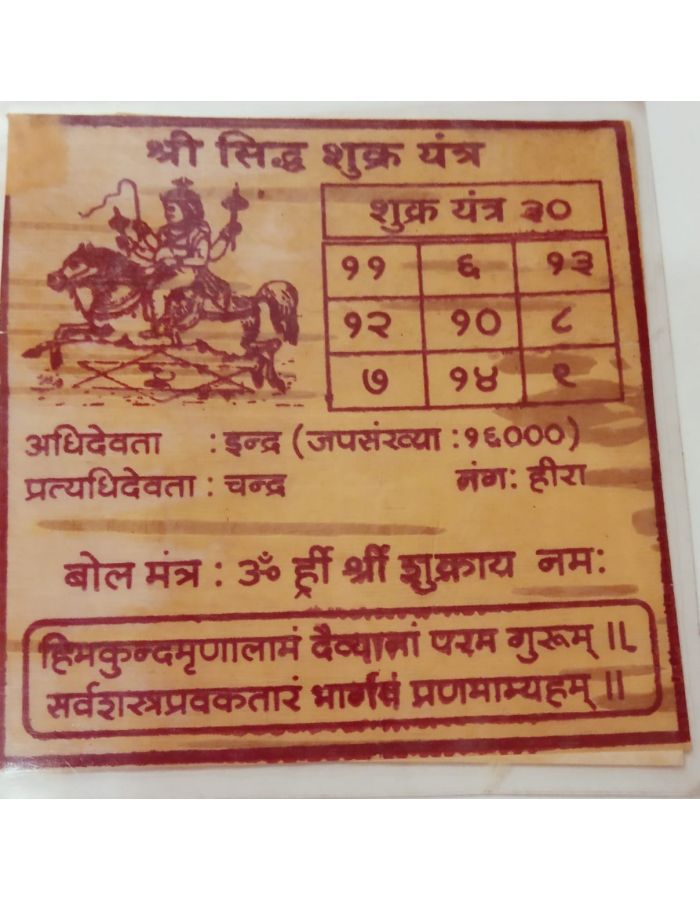 श्री सिद्ध शुक्र यंत्र
शुक्र यंत्र ३०
११ ६ १३
१२ १० ८
७ १४ ९
अधिदेवता : इन्द्र (जपसंख्या : १६०००)
प्रत्यधिदेवता : चन्द्र नंग: हीरा
बोल मंत्र : ॐ ह्रीं श्रीं शुक्राय नम:
हिमकुन्दमृणालामं दैव्यानां परम गुरूम् ।।
सर्वशस्त्रप्रवकतारं भार्गवं प्रणमाम्यहम् ।।